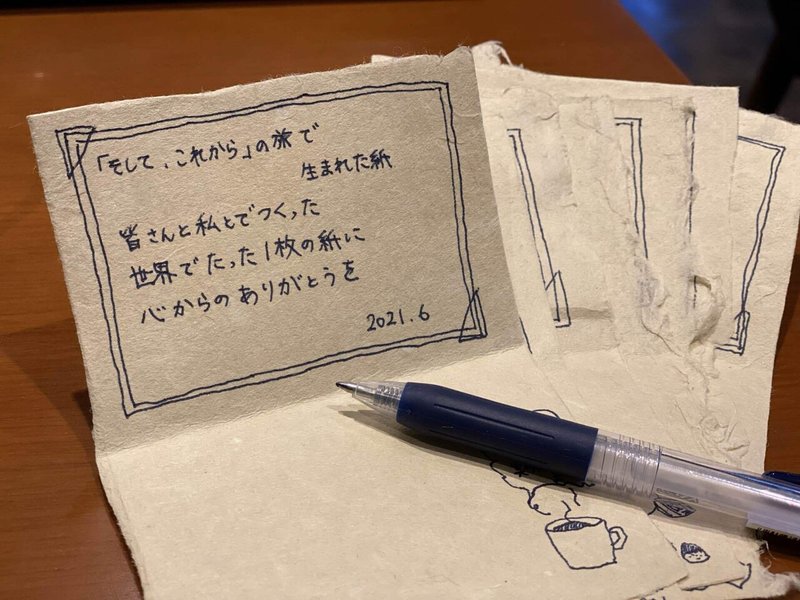 「そして、これから」の旅で
生まれた紙
皆さんと私とでつくった
世界でたった1枚の紙に
心からのありがとうを
2021.6